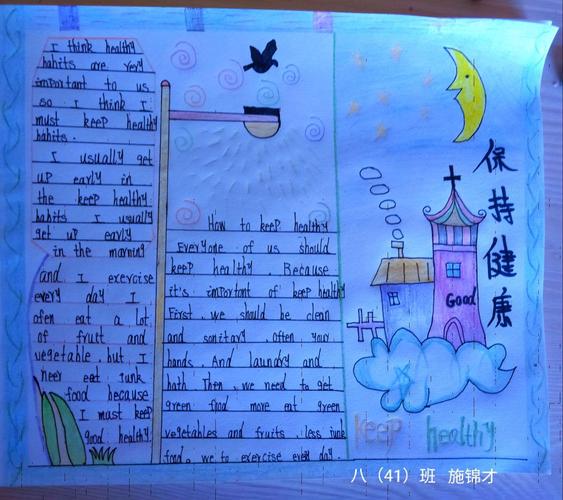 I think healthy
habits are very
important to us
so I think I
must keep healthy
habits.
I usually get
up early in
the keep healthy
habits I usually
get up early
in the morning
and I exercise
every day I
ofen eat a lot
of fruit and
vegetable. but I
neer eat junk
food because
I mast keep
good healthy.
How to keep healthy
Everyone of us should
keep healthy. Because
it's important of keep healthy
First. we should be clean
and sanitary. often your
hands. And laundry and
bath. Then. we need to get
green food more eat green
vegetables and fruits. less junk
food. we to exercise every day.
Good
保持健康
keep healthy
八（41）班 施锦才